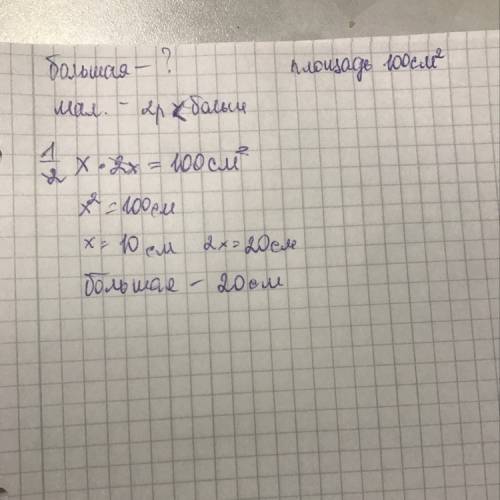 большая - ? площадь 100см²
мал. - 2р < больш
1/2 x · 2x = 100см²
x² = 100см
x = 10см 2x = 20см
большая - 20см